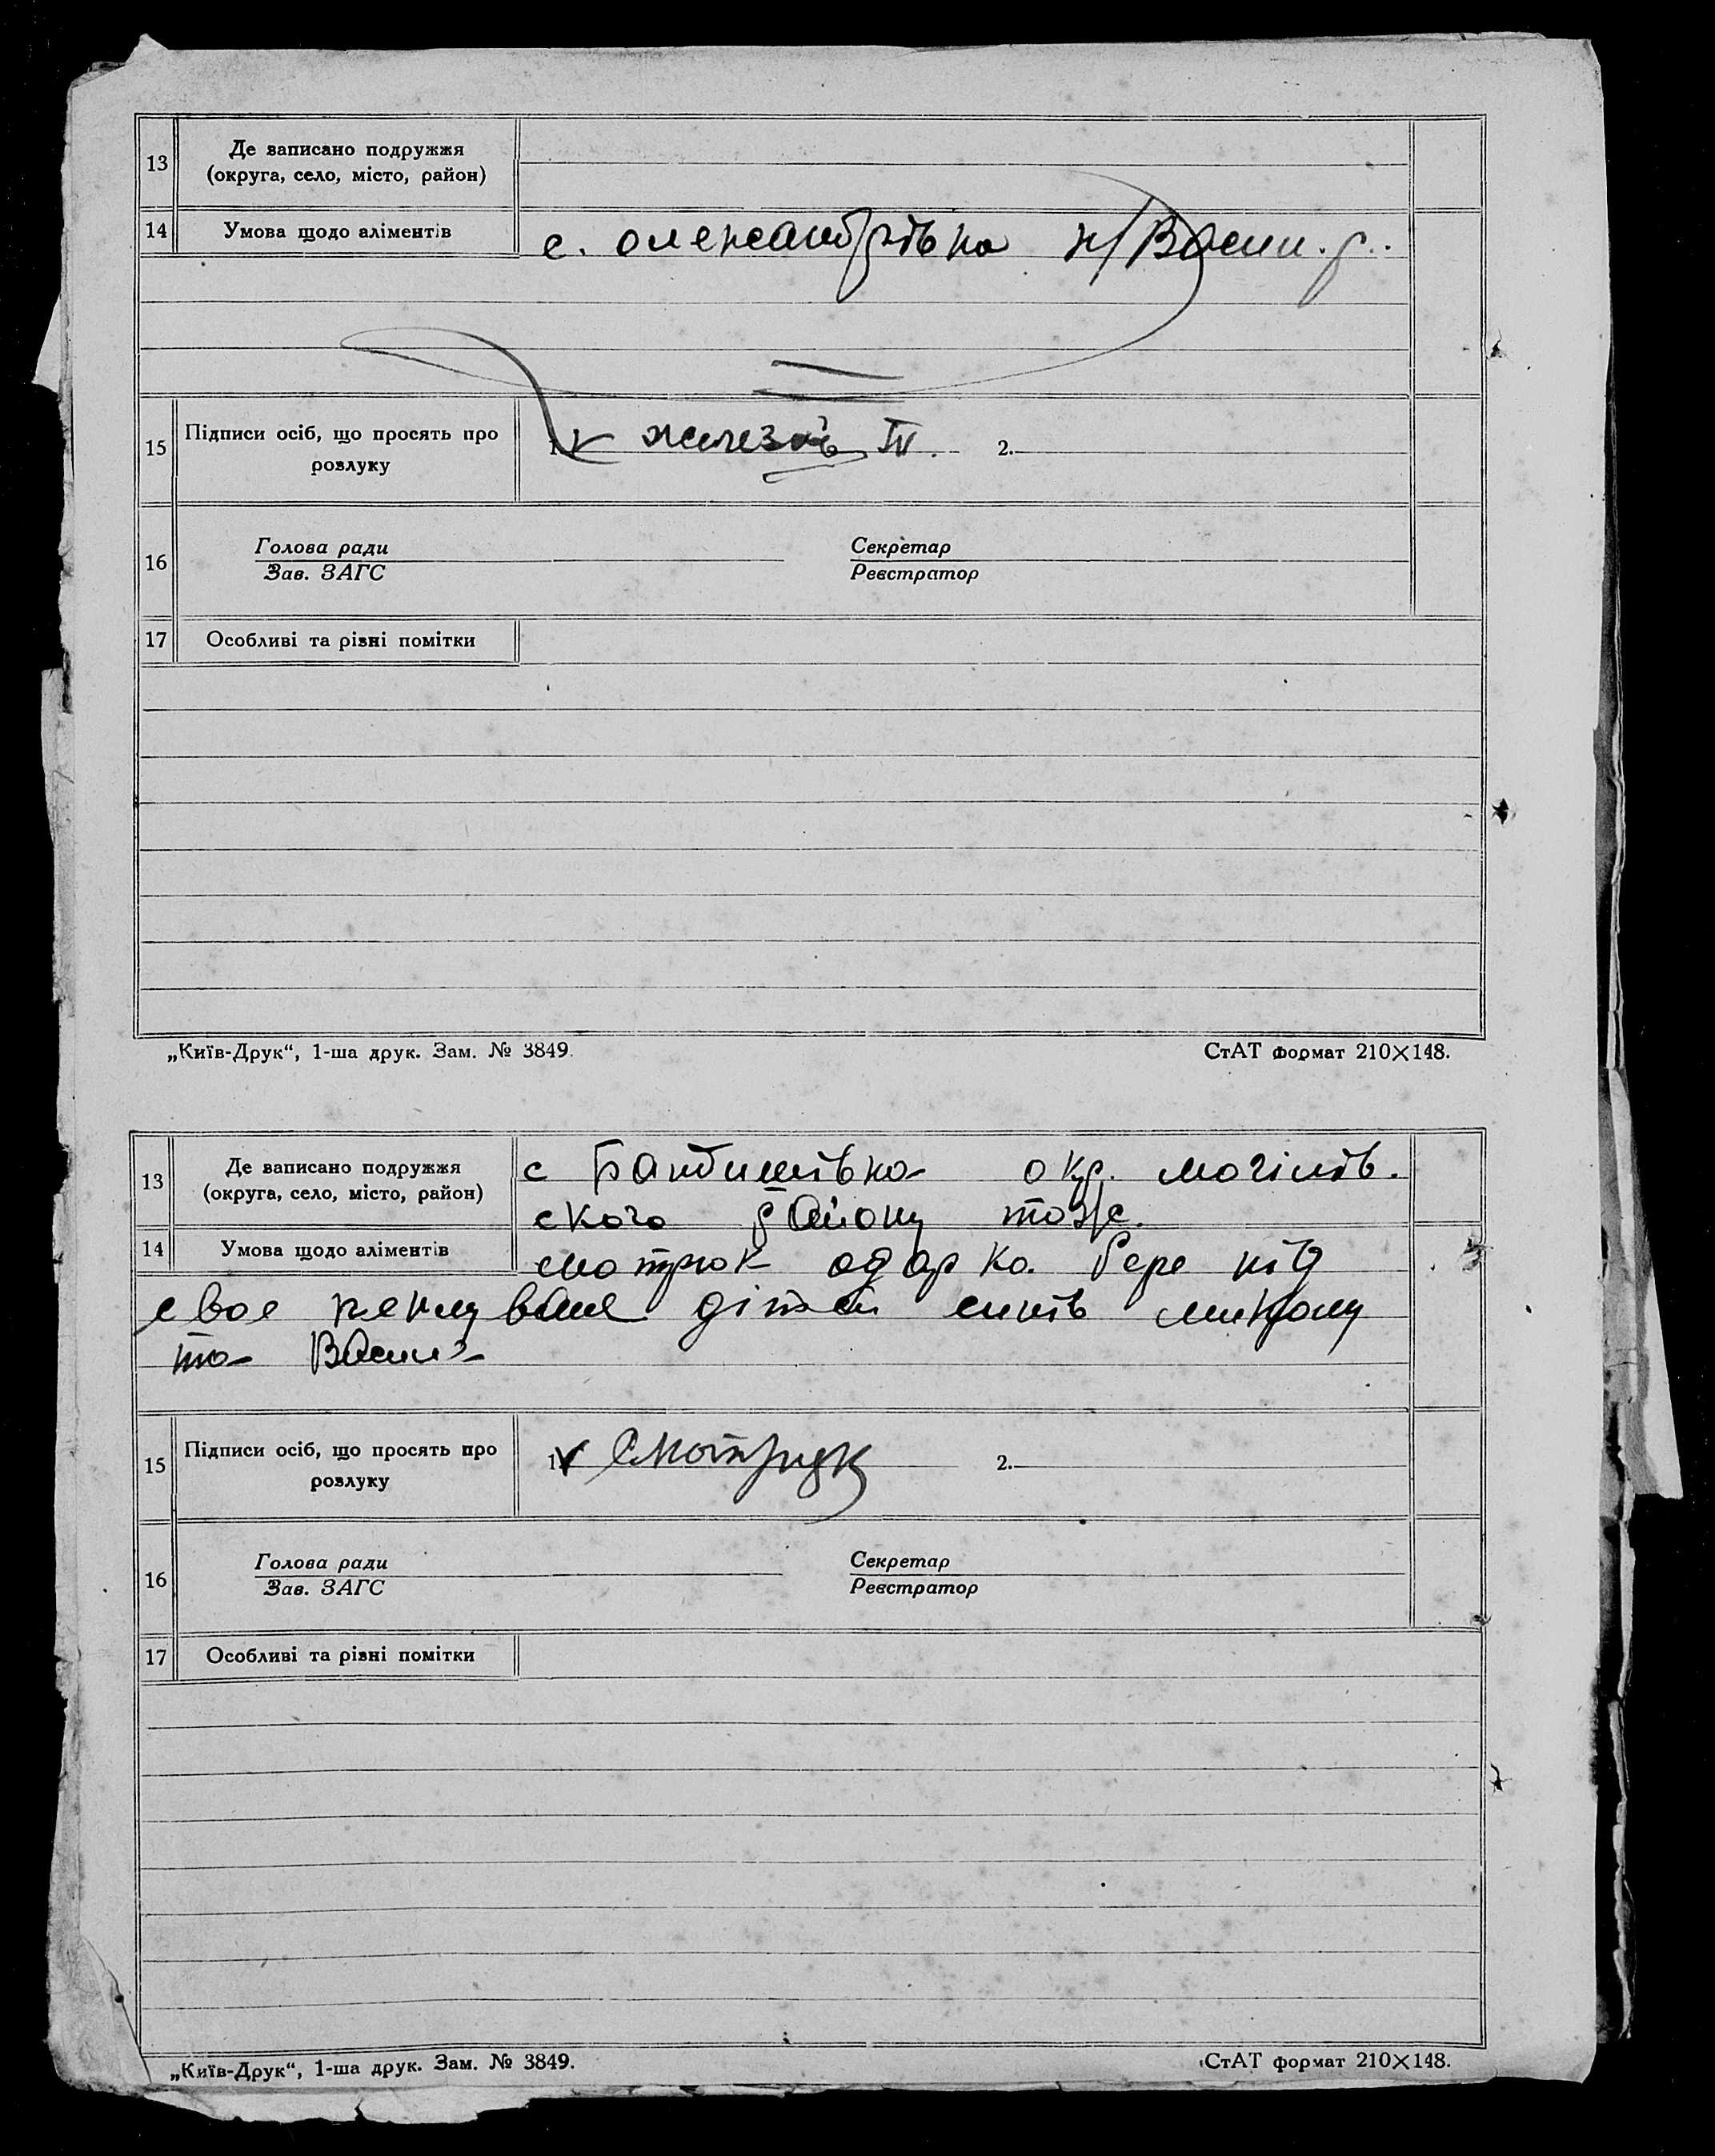 13 Де записано подружжя
(округа, село, місто, район)
14 Умова щодо аліментів с. олександрівка н/Васил. р.
15 Підписи осіб, що просять про 1. 2.
розлуку
16 Голова ради Секретар
Зав. ЗАГС Реєстратор
17 Особливі та різні помітки
„Київ-Друк“, 1-ша друк. Зам. № 3849. СтАТ формат 210×148.
13 Де записано подружжя с Бандишівка окр. могілів.
(округа, село, місто, район) ского району тож.
14 Умова щодо аліментів смотрюк одарка бере під
свое дітей синів
та
15 Підписи осіб, що просять про 1. Смотрюк 2.
розлуку
16 Голова ради Секретар
Зав. ЗАГС Реєстратор
17 Особливі та різні помітки
„Київ-Друк“, 1-ша друк. Зам. № 3849. СтАТ формат 210×148.